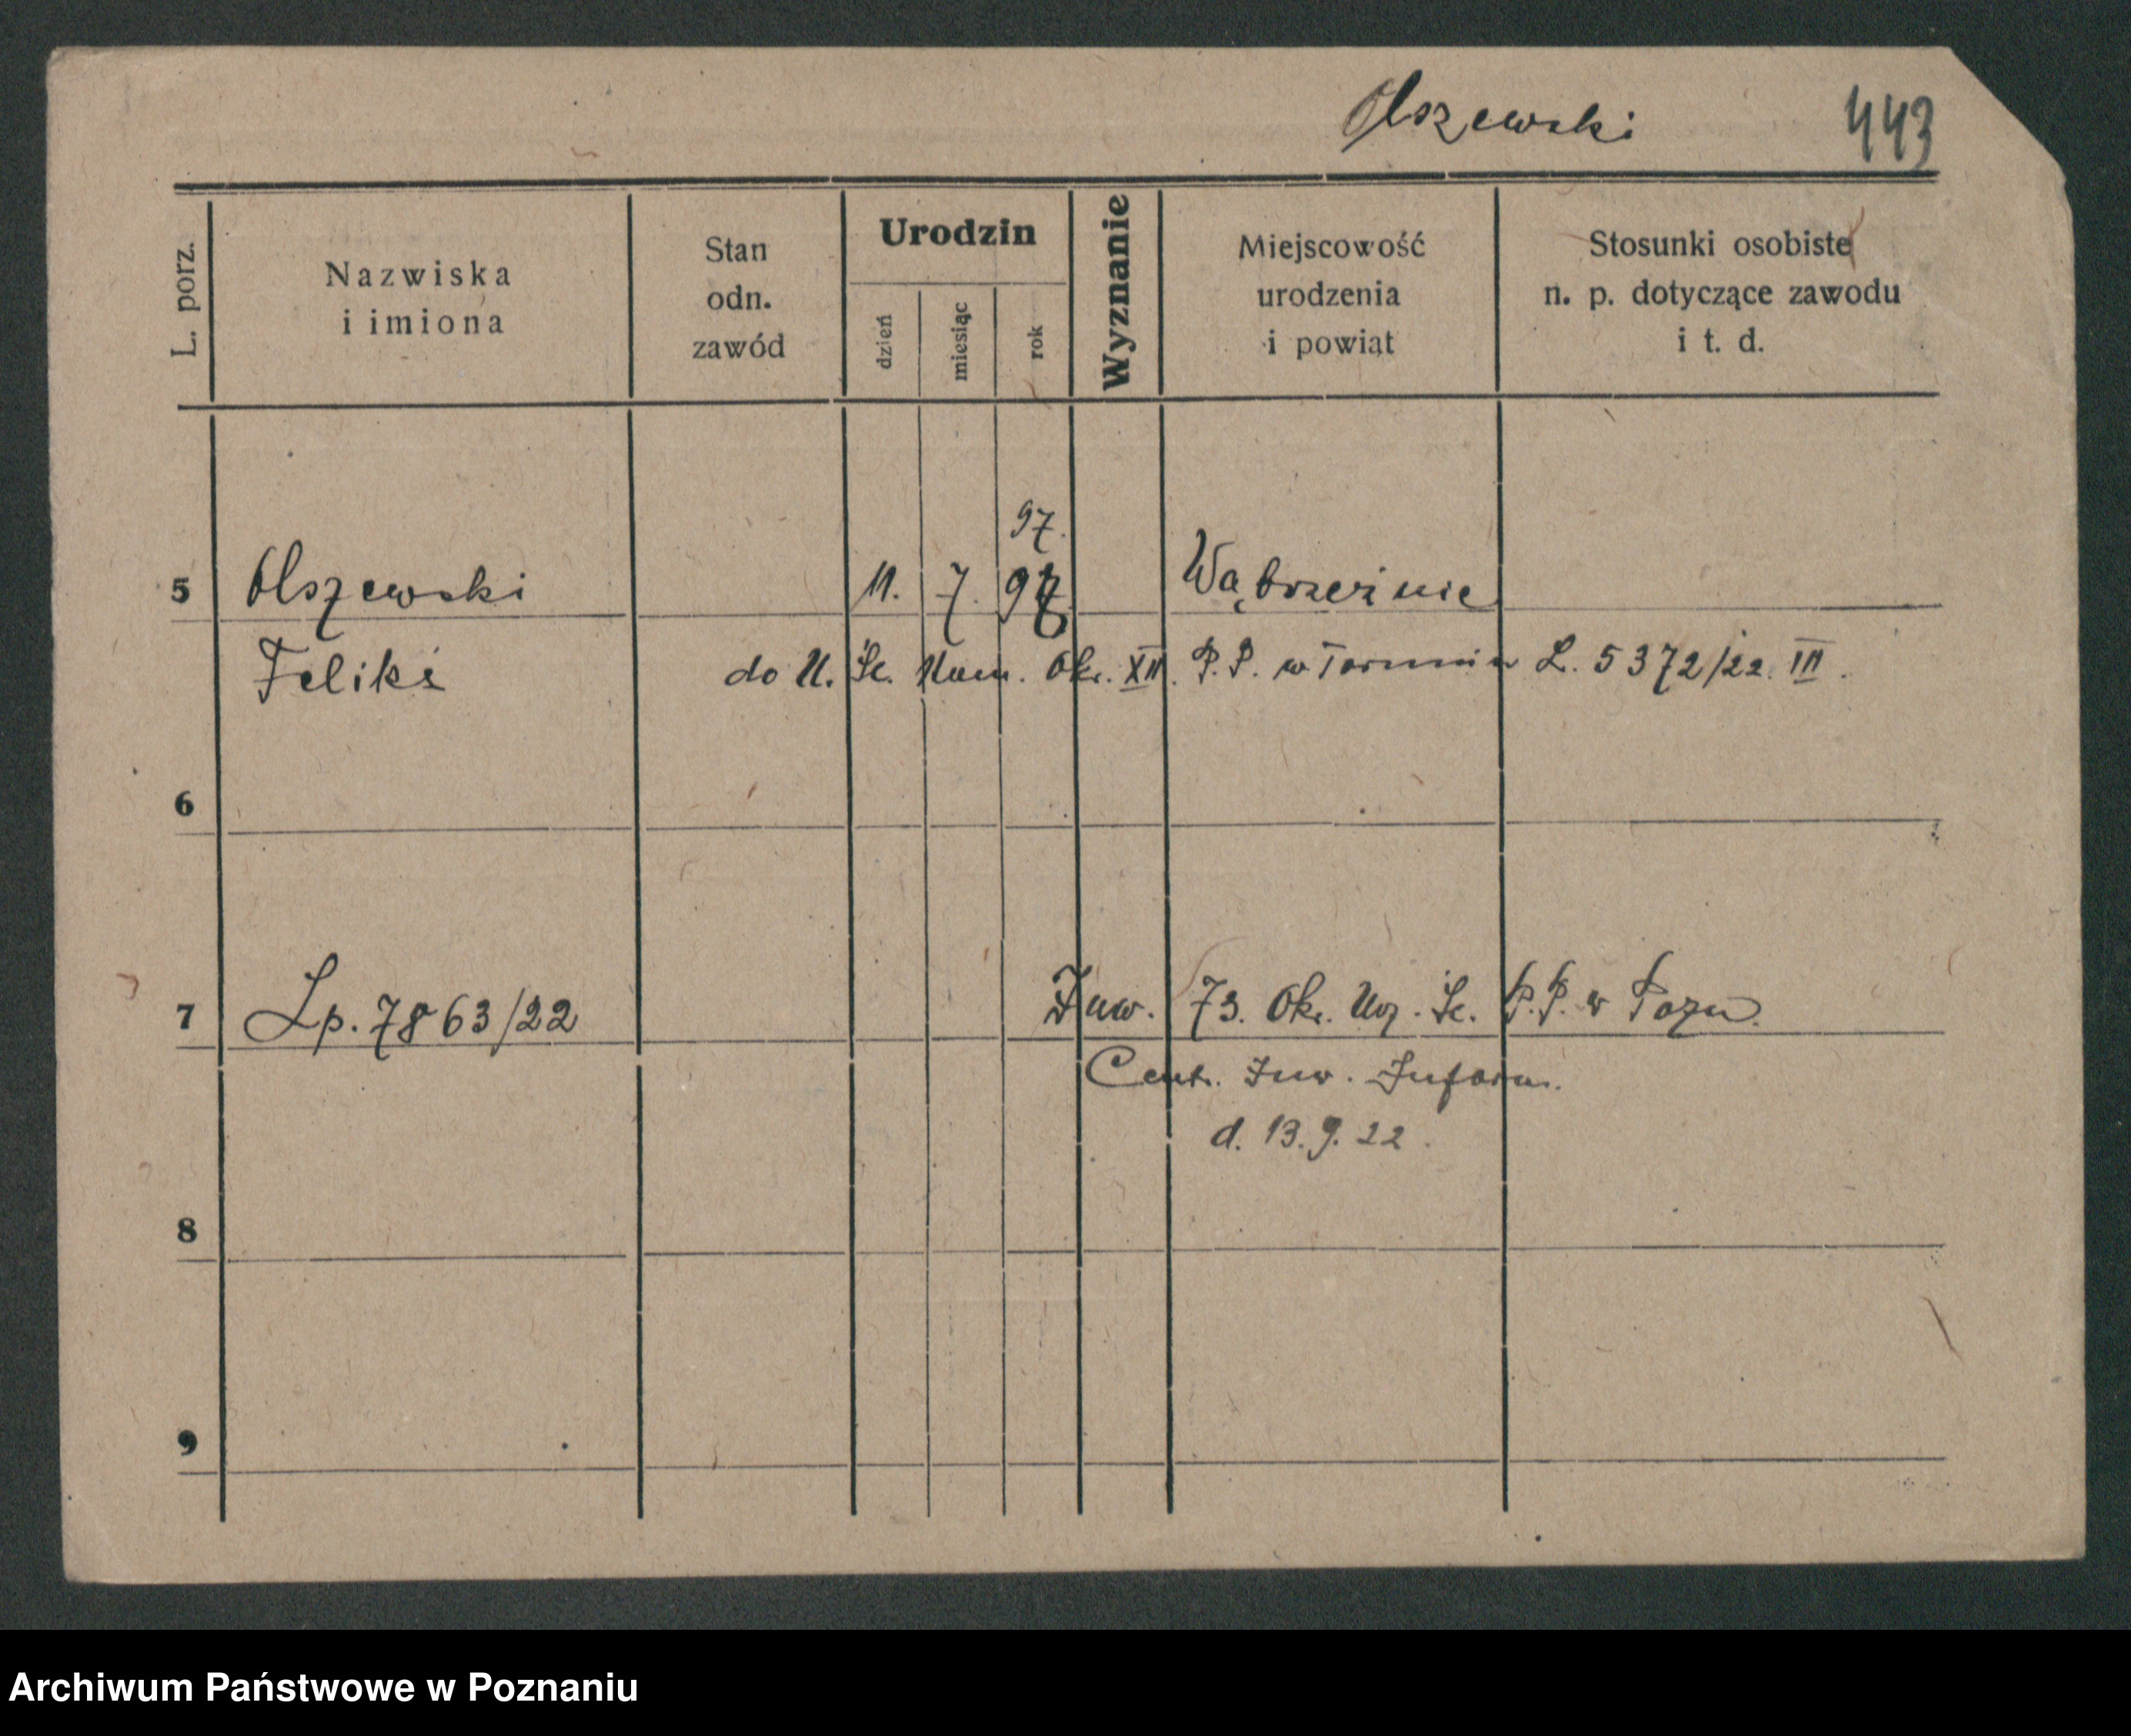 Olszewski 443
L. porz.
Nazwiska
i imiona
Stan
odn.
zawód
Urodzin
dzień
miesiąc
rok
Wyznanie
Miejscowość
urodzenia
i powiat
Stosunki osobiste
n. p. dotyczące zawodu
i t. d.
97.
5 Olszewski 11. 7. 97 Wąbrzeźnie
Feliks do U. Śl. Kom. Okr. XII. P.P. w Toruniu L. 5372/22. III.
6
7 Lp. 7863/22 Inw. 73. Okr. Urz. Śl. P.P. w Pozn.
Centr. Inw. Inform.
d. 13.9.22.
8
9
Archiwum Państwowe w Poznaniu